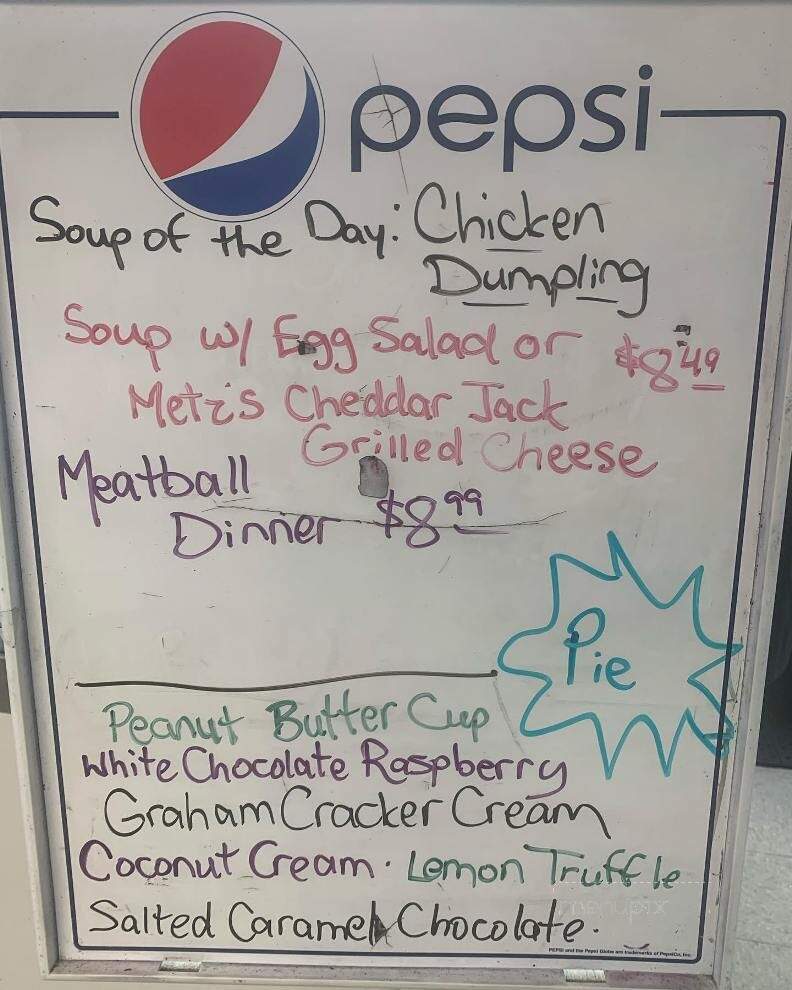 pepsi
Soup of the Day: Chicken
Dumpling
Soup w/ Egg Salad or $8.49
Metz's Cheddar Jack
Grilled Cheese
Meatball
Dinner $8.99
Pie
Peanut Butter Cup
White Chocolate Raspberry
Graham Cracker Cream
Coconut Cream · Lemon Truffle
Salted Caramel Chocolate.
PEPSI and the Pepsi Globe are trademarks of PepsiCo, Inc.
menupix